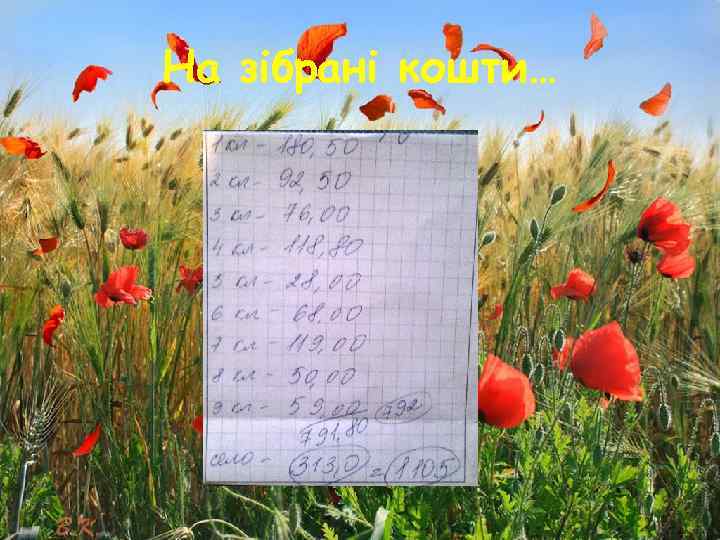 На зібрані кошти...
1 кл - 180,50
2 кл - 92,50
3 кл - 76,00
4 кл - 118,80
5 кл - 28,00
6 кл - 68,00
7 кл - 119,00
8 кл - 50,00
9 кл - 59,00 792
791,80
село - 313,0 = 1105
Е.К